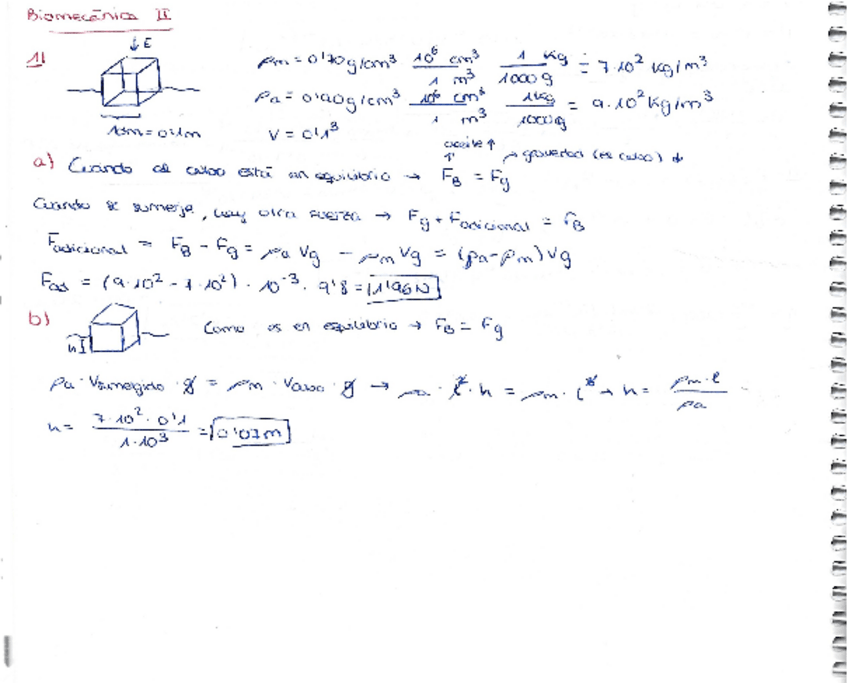 Biomecánica II
1) ↓E
ρm = 0'70 g/cm³ 10⁶ cm³ / 1 m³ 1 kg / 1000 g = 7·10² kg/m³
ρa = 0'90 g/cm³ 10⁶ cm³ / 1 m³ 1 kg / 1000 g = 9·10² kg/m³
= 0'1m V = 0'1³
aceite ↑ (es cubo) ↓
a) Cuando el cubo está en equilibrio → F_B = F_g
Cuando se sumerje, hay otra fuerza → F_g + F_adicional = F_B
F_adicional = F_B - F_g = ρa V g - ρm V g = (ρa - ρm) V g
F_ad = (9·10² - 7·10²) · 10⁻³ · 9'8 = 1'96 N
b) h Como es en equilibrio → F_B = F_g
ρa · V sumergido · g = ρm · V cubo · g → ρa · l² · h = ρm · l³ → h = ρm · l / ρa
h = 7·10² · 0'1 / 1·10³ = 0'07 m